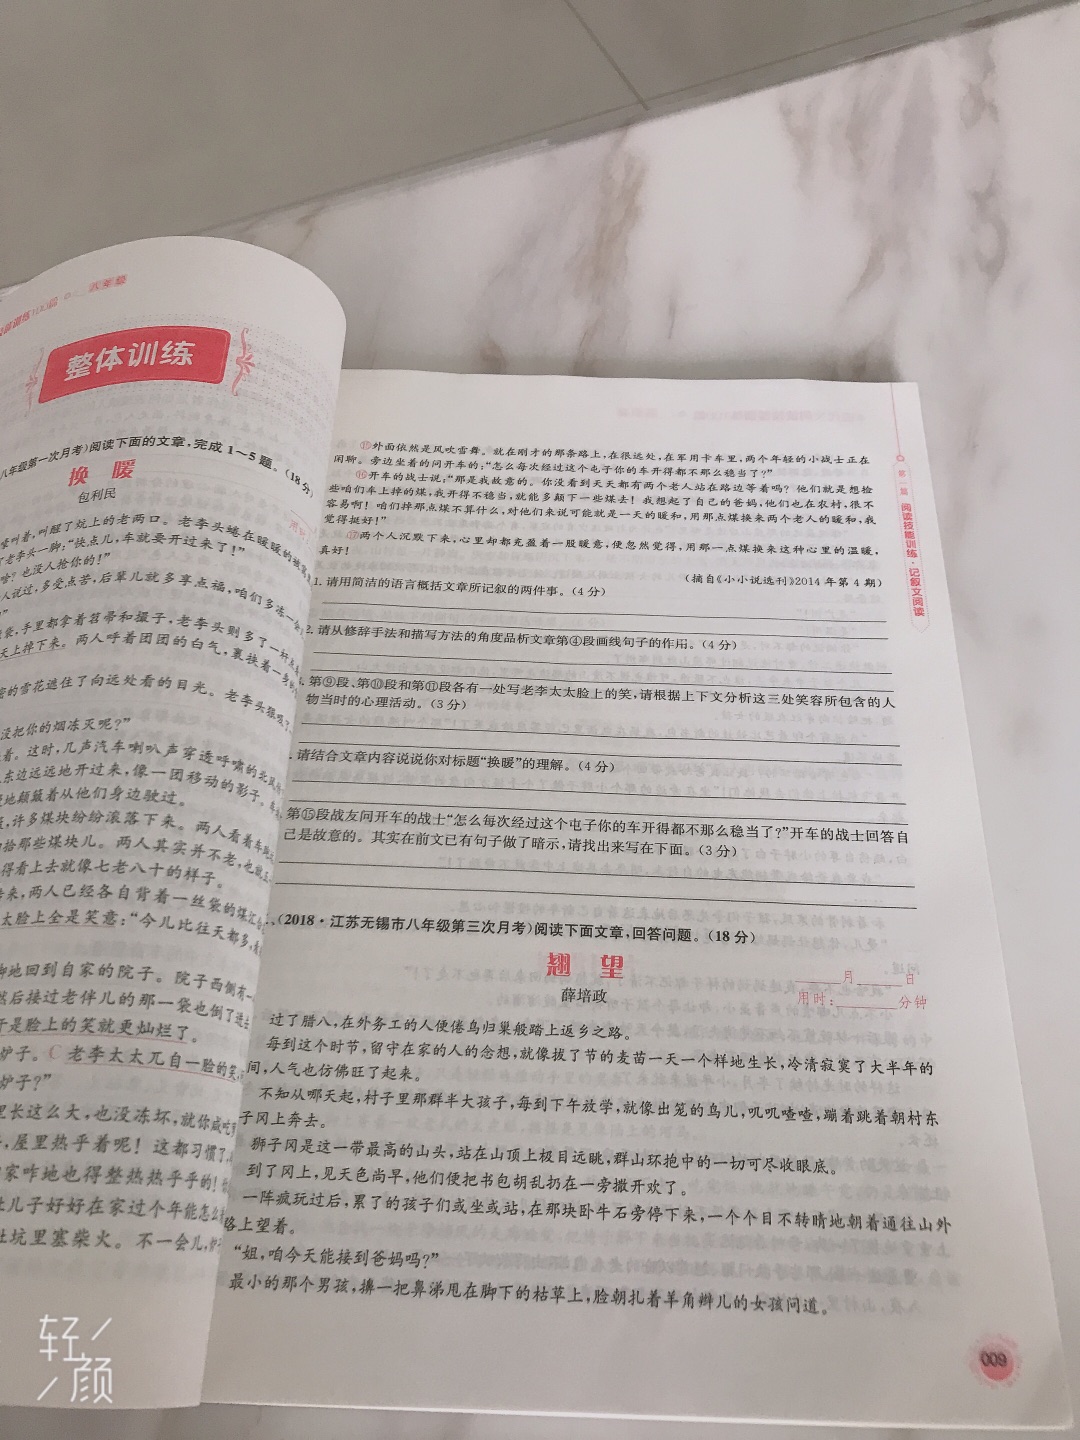 八年级
整体训练
八年级第一次月考)阅读下面的文章,完成1~5题。(18分)
换 暖
包利民
叫醒了炕上的老两口。老李头蜷在暖暖的
了老李头一脚:“快点儿,车就要开过来了!”
啥?也没人抢你的!”
人说过,多受点苦,后辈儿就多享点福,咱们多冻一
袋,手里都拿着笤帚和撮子,老李头则多了一杆
天上掉下来。两人呼着团团的白气,裹挟着一身的
密的雪花遮住了向远处看的目光。老李头狠吸了
没把你的烟冻灭呢?”
着。这时,几声汽车喇叭声穿透呼啸的北风
东边远远地开过来,像一团移动的影子。
地颠簸着从他们身边驶过。
许多煤块纷纷滚落下来。两人看着车
拾那些煤块儿。两人其实并不老,也就
得看上去就像七老八十的样子。
来,两人已经各自背着一丝袋的煤
太脸上全是笑意:“今儿比往天都多,
地回到自家的院子。院子西侧有一
然后接过老伴儿的那一袋也倒了进去
于是脸上的笑就更灿烂了。
炉子。C老李太太兀自一脸的笑,
炉子?”
里长这么大,也没冻坏,就你咸吃
屋里热乎着呢!这都习惯了,
家咋地也得整热热乎乎的!
让儿子好好在家过个年能怎么
灶坑里塞柴火。不一会儿,炉
⑮外面依然是风吹雪舞。就在刚才的那条路上,在很远处,在军用卡车里,两个年轻的小战士正在
闲聊。旁边坐着的问开车的:“怎么每次经过这个屯子你的车开得都不那么稳当了?”
⑯开车的战士说:“那是我故意的。你没看到天天都有两个老人站在路边等着吗?他们就是想捡
些咱们车上掉的煤,我开得不稳当,就能多颠下一些煤去!我想起了自己的爸妈,他们也在农村,很不
容易啊!咱们掉那点煤不算什么,对他们来说可能就是一天的暖和,用那点煤换来两个老人的暖和,我
觉得挺好!”
⑰两个人沉默下来,心里却都充盈着一股暖意,便忽然觉得,用那一点煤换来这种心里的温暖,
真好!
(摘自《小小说选刊》2014年第4期)
1. 请用简洁的语言概括文章所记叙的两件事。(4分)
2. 请从修辞手法和描写方法的角度品析文章第④段画线句子的作用。(4分)
第⑨段、第⑩段和第⑪段各有一处写老李太太脸上的笑,请根据上下文分析这三处笑容所包含的人
物当时的心理活动。(3分)
请结合文章内容说说你对标题“换暖”的理解。(4分)
第⑮段战友问开车的战士“怎么每次经过这个屯子你的车开得都不那么稳当了?”开车的战士回答自
己是故意的。其实在前文已有句子做了暗示,请找出来写在下面。(3分)
、(2018·江苏无锡市八年级第三次月考)阅读下面文章,回答问题。(18分)
翘 望
薛培政
月 日
用时: 分钟
过了腊八,在外务工的人便倦鸟归巢般踏上返乡之路。
每到这个时节,留守在家的人的念想,就像拔了节的麦苗一天一个样地生长,冷清寂寞了大半年的
间,人气也仿佛旺了起来。
不知从哪天起,村子里那群半大孩子,每到下午放学,就像出笼的鸟儿,叽叽喳喳,蹦着跳着朝村东
子冈上奔去。
狮子冈是这一带最高的山头,站在山顶上极目远眺,群山环抱中的一切可尽收眼底。
到了冈上,见天色尚早,他们便把书包胡乱扔在一旁撒开欢了。
一阵疯玩过后,累了的孩子们或坐或站,在那块卧牛石旁停下来,一个个目不转睛地朝着通往山外
路上望着。
“姐,咱今天能接到爸妈吗?”
最小的那个男孩,擤一把鼻涕甩在脚下的枯草上,脸朝扎着羊角辫儿的女孩问道。
第一篇 阅读技能训练·记叙文阅读
009
轻颜